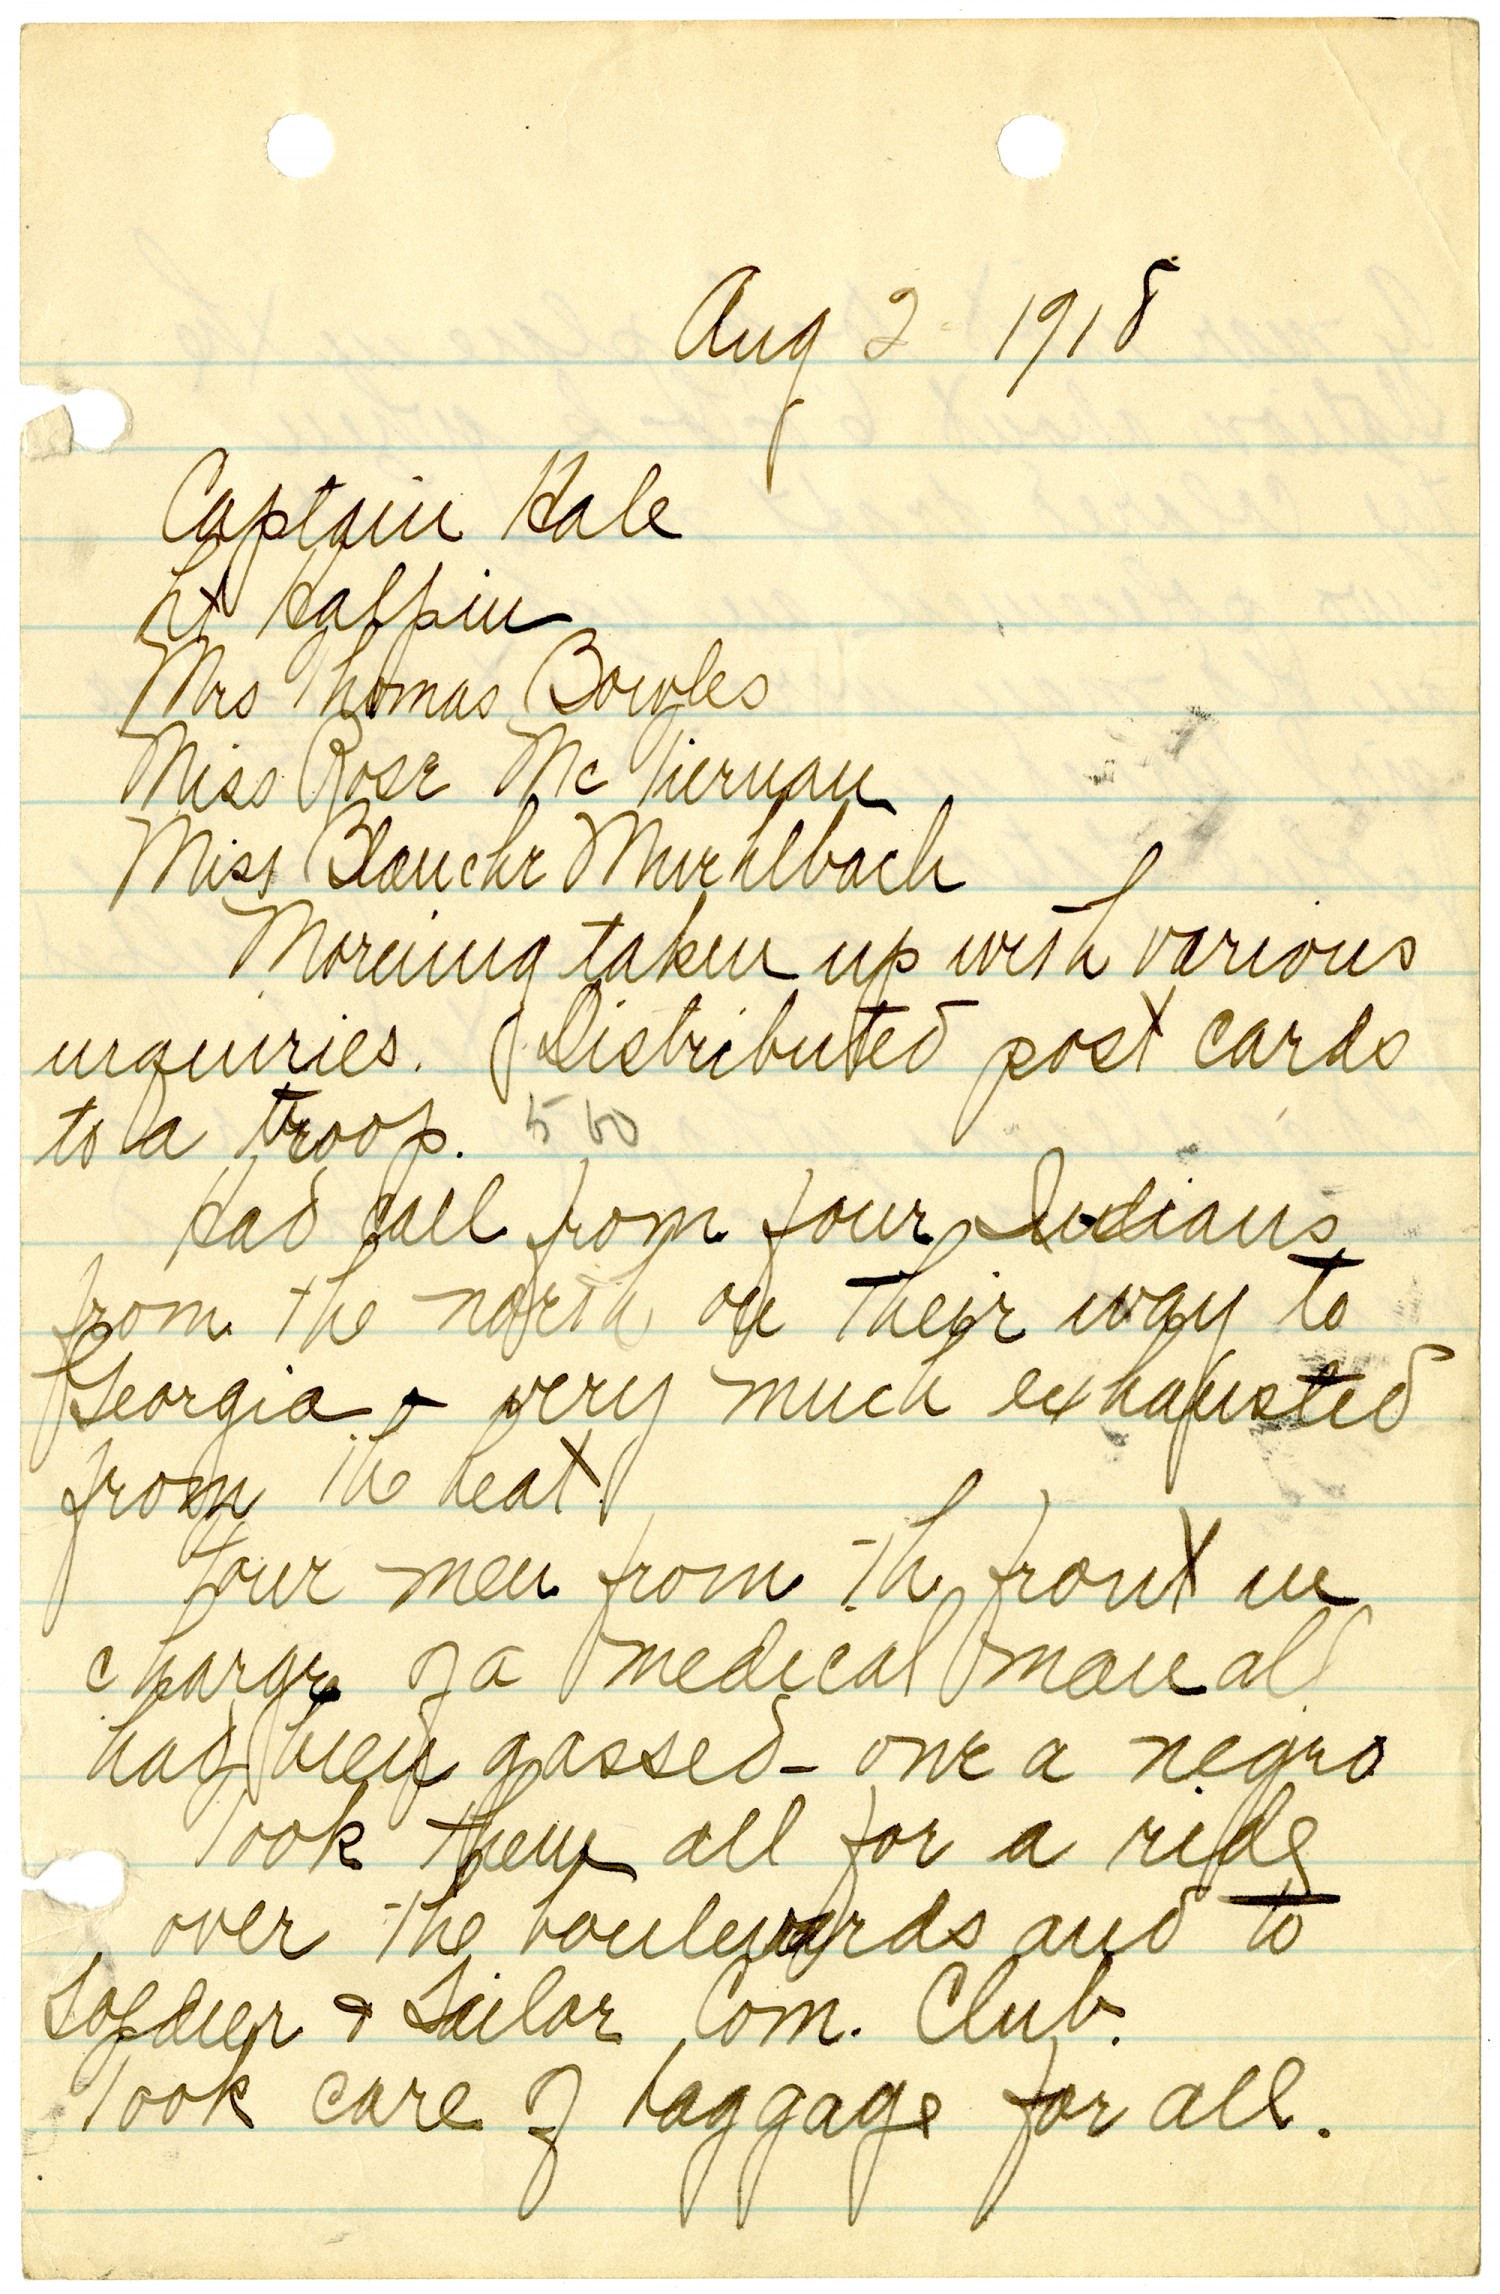 Aug 2 - 1918
Captain Hale
Lt Halpin
Mrs Thomas Bowles
Miss Rose McTiernan
Miss Blanche Muehlbach
Morning taken up with various
inquiries. Distributed post cards
to a troop. 560
Had call from four Indians
from the north on their way to
Georgia & very much exhausted
from the heat.
Four men from th front in
charge of a medical man all
had been gassed - one a negro
Took them all for a ride
over the boulevards and to
Soldier & Sailor Com. Club.
Took care of baggage for all.